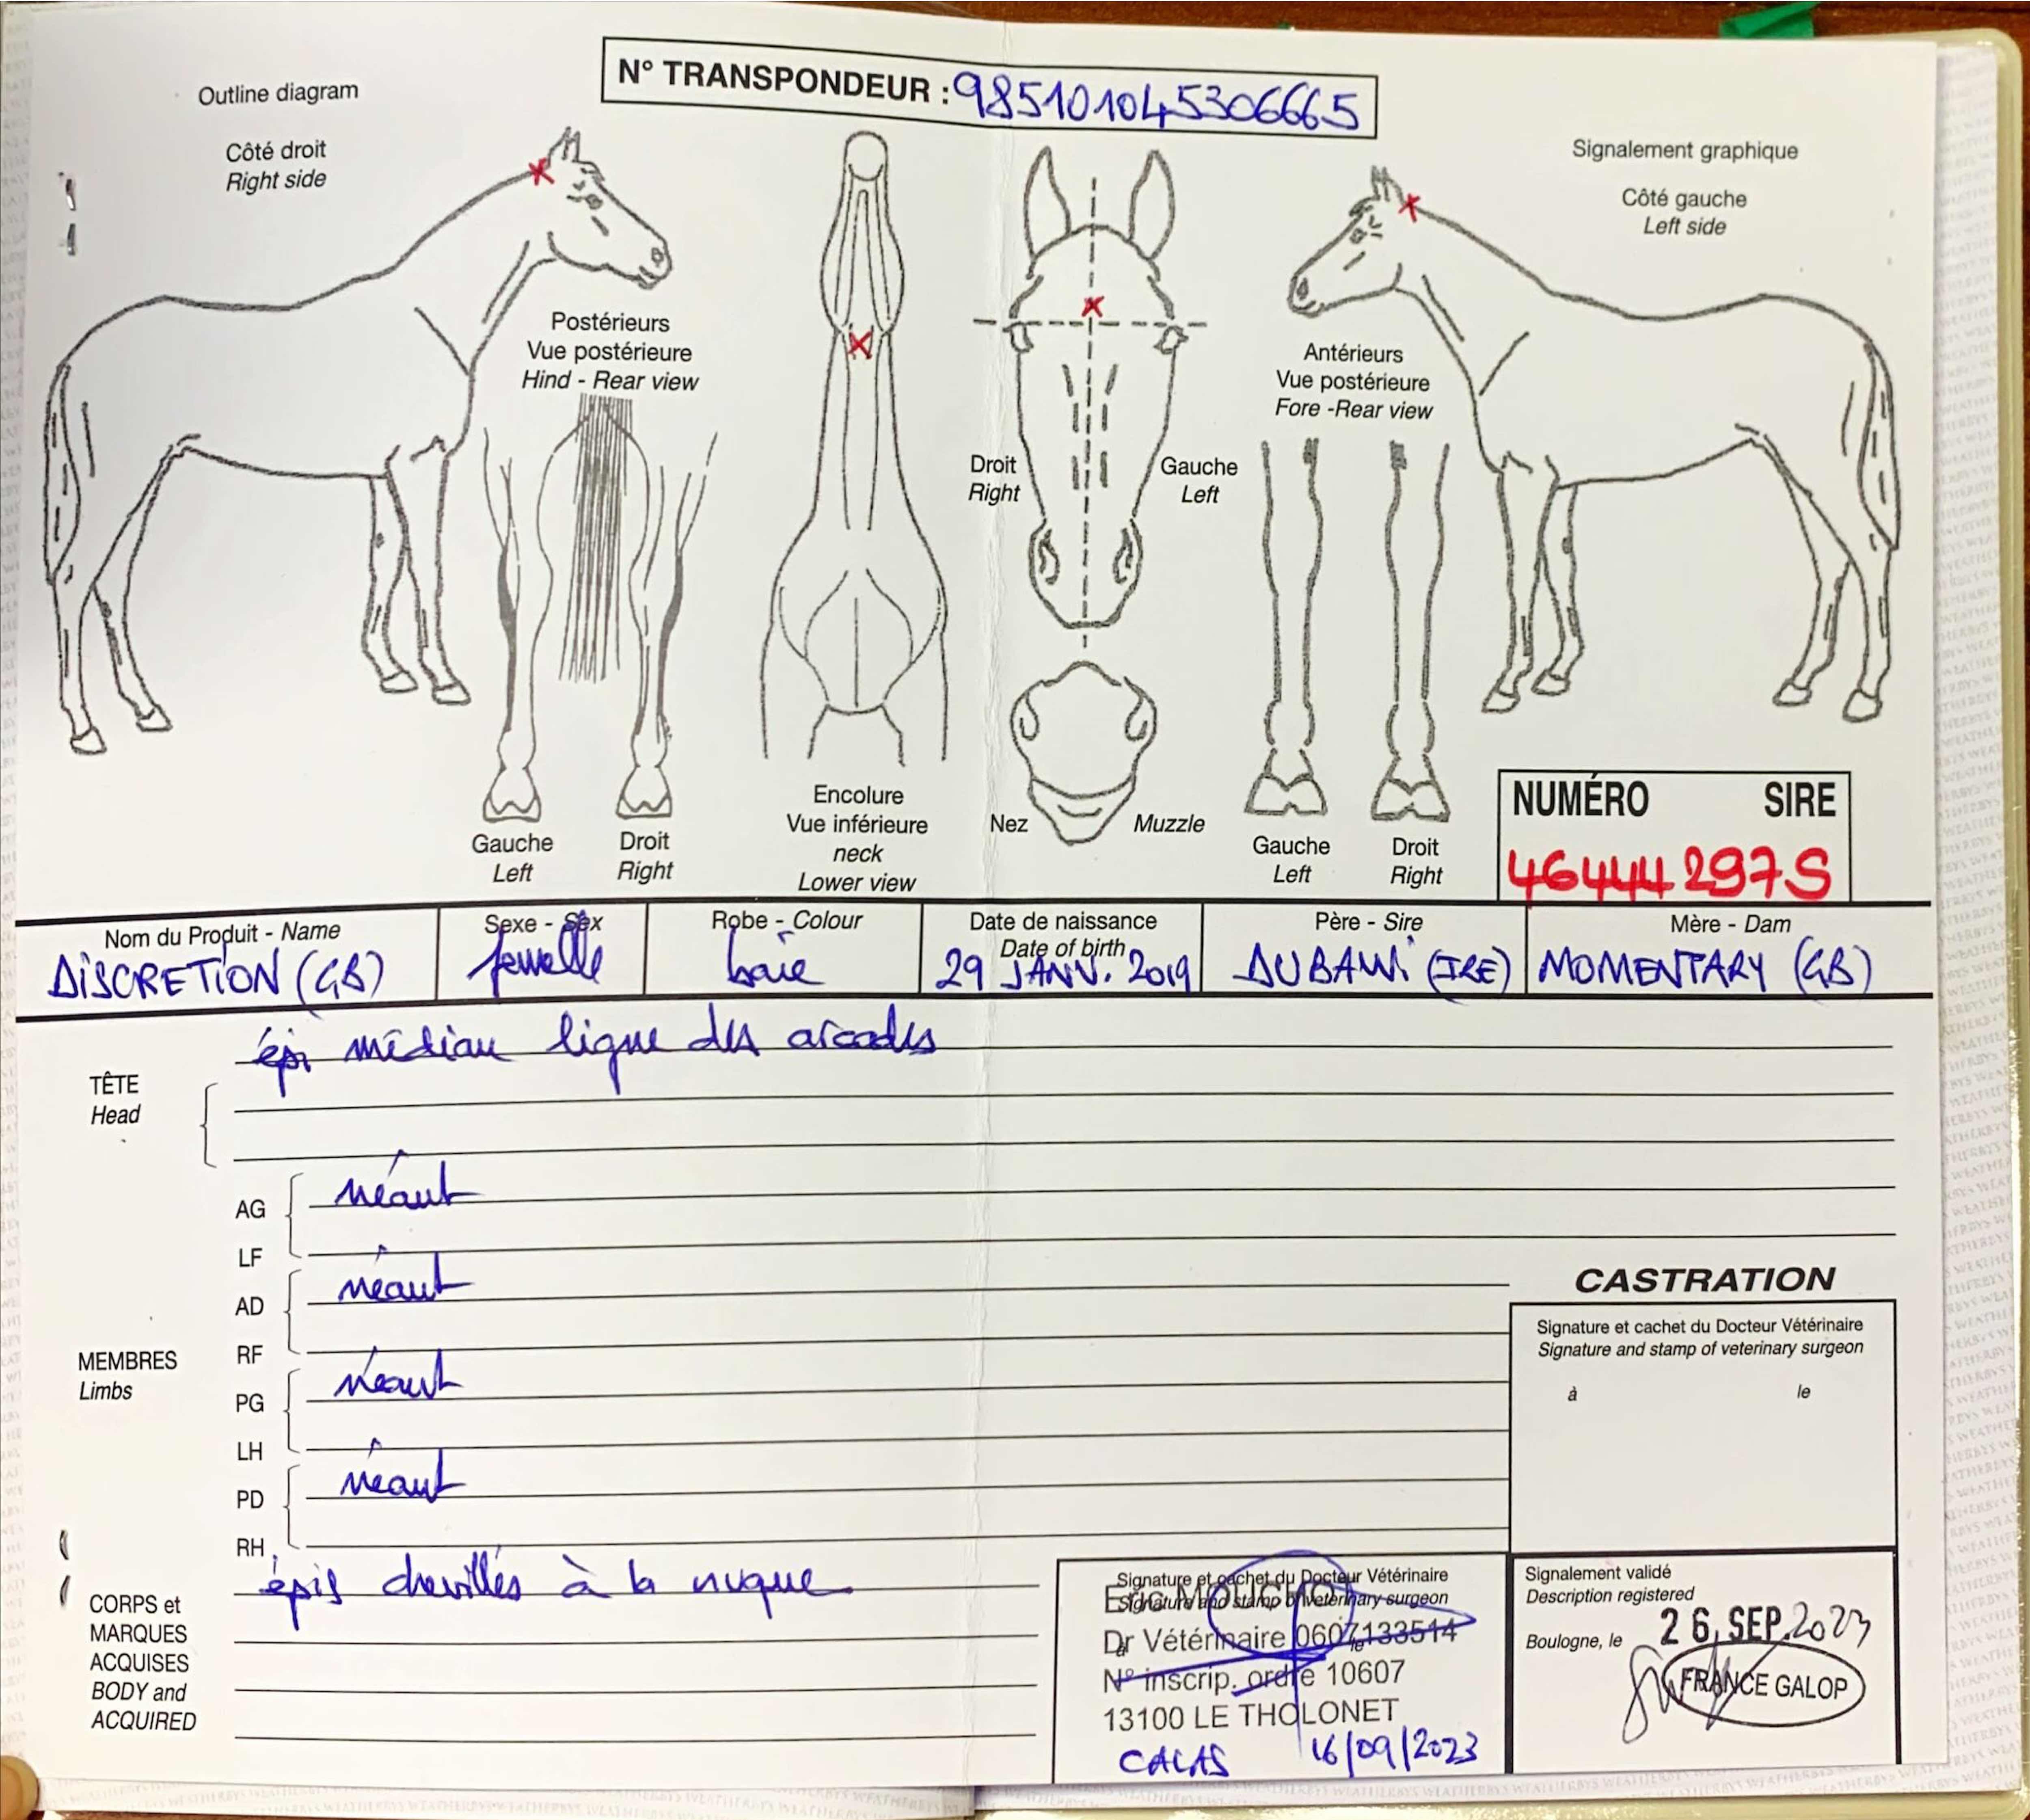 N° TRANSPONDEUR : 985101045306665
Outline diagram
Côté droit
Right side
Signalement graphique
Côté gauche
Left side
Postérieurs
Vue postérieure
Hind - Rear view
Antérieurs
Vue postérieure
Fore -Rear view
Droit
Right
Gauche
Left
Gauche
Left
Droit
Right
Encolure
Vue inférieure
neck
Lower view
Nez
Muzzle
Gauche
Left
Droit
Right
NUMÉRO SIRE
46444297S
Nom du Produit - Name
DISCRETION (GB)
Sexe - Sex
femelle
Robe - Colour
baie
Date de naissance
Date of birth
29 JANV. 2019
Père - Sire
DUBAWI (IRE)
Mère - Dam
MOMENTARY (GB)
TÊTE
Head
épi médian ligne des arcades
MEMBRES
Limbs
AG
LF
néant
AD
RF
néant
PG
LH
néant
PD
RH
néant
CORPS et
MARQUES
ACQUISES
BODY and
ACQUIRED
épis chevillés à la nuque
CASTRATION
Signature et cachet du Docteur Vétérinaire
Signature and stamp of veterinary surgeon
à le
Signature et cachet du Docteur Vétérinaire
Signature and stamp of veterinary surgeon
Eric
Dr Vétérinaire 0607133514
N° inscrip. ordre 10607
13100 LE THOLONET
CALAS 16/09/2023
Signalement validé
Description registered
Boulogne, le 26. SEP. 2023
FRANCE GALOP